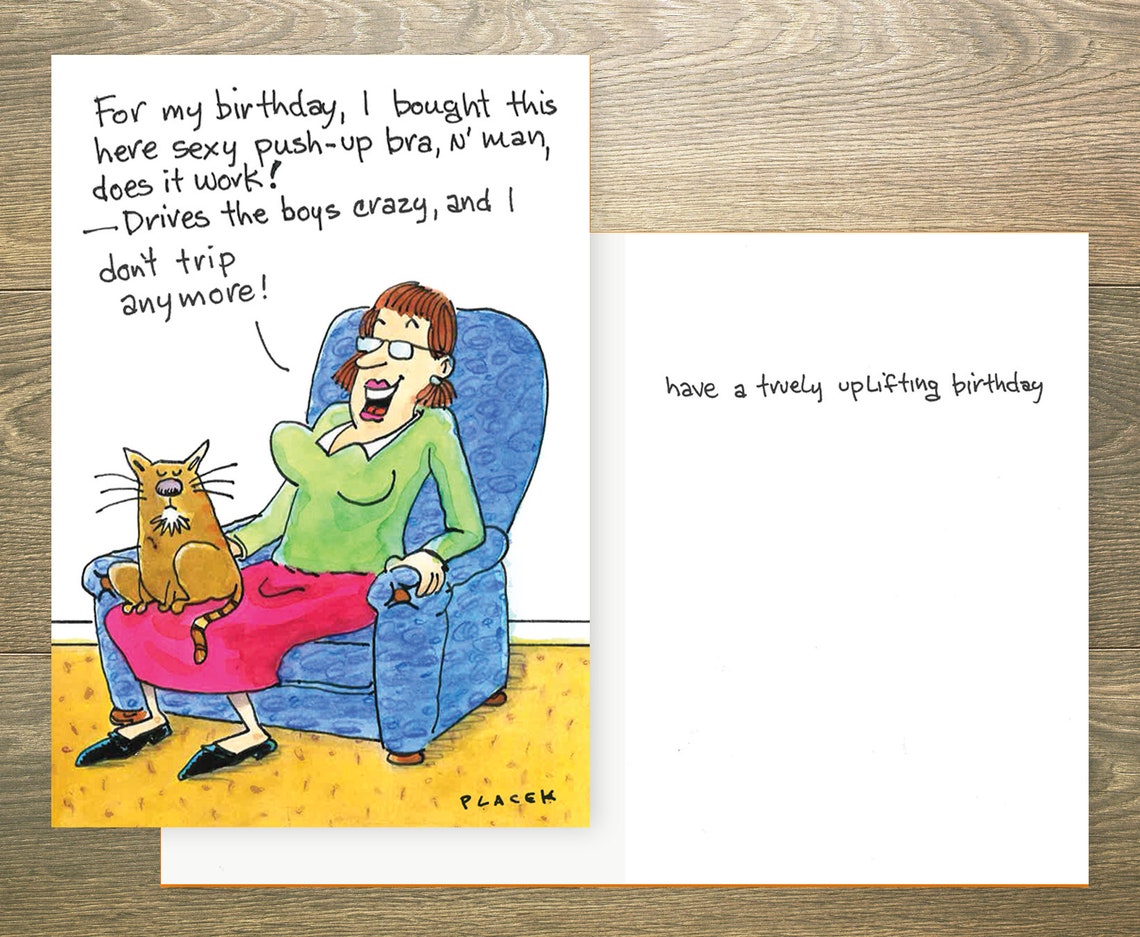 For my birthday, I bought this
here sexy push-up bra, N' man,
does it work!
—Drives the boys crazy, and I
don't trip
anymore!
PLACEK
have a truely uplifting birthday